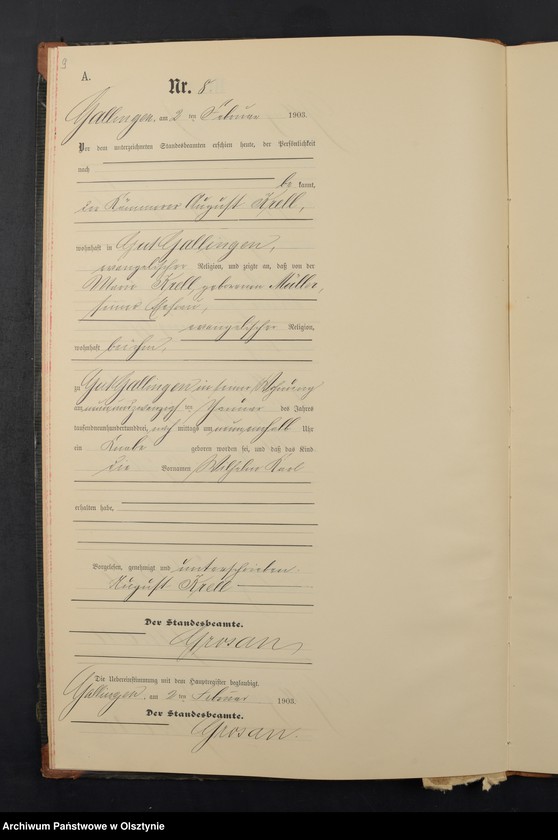 A.
Nr. 8.
Gallingen, am 2 ten Februar 1903.
Vor dem unterzeichneten Standesbeamten erschien heute, der Persönlichkeit
nach
be kannt,
der Kämmerer August Krell,
wohnhaft in Gut Gallingen,
evangelischer Religion, und zeigte an, daß von der
Marie Krell, geborenen Müller,
seiner Ehefrau,
evangelischer Religion,
wohnhaft bei ihm,
zu Gut Gallingen in seiner Wohnung
am neunundzwanzigsten Januar des Jahres
tausendneunhundertunddrei, nach mittags um neuneinhalb Uhr
ein Knabe geboren worden sei, und daß das Kind
die Vornamen Wilhelm Karl
erhalten habe,
Vorgelesen, genehmigt und unterschrieben
August Krell
Der Standesbeamte.
Grosan
Die Uebereinstimmung mit dem Hauptregister beglaubigt.
Gallingen, am 2 ten Februar 1903.
Der Standesbeamte.
Grosan.
Archiwum Państwowe w Olsztynie